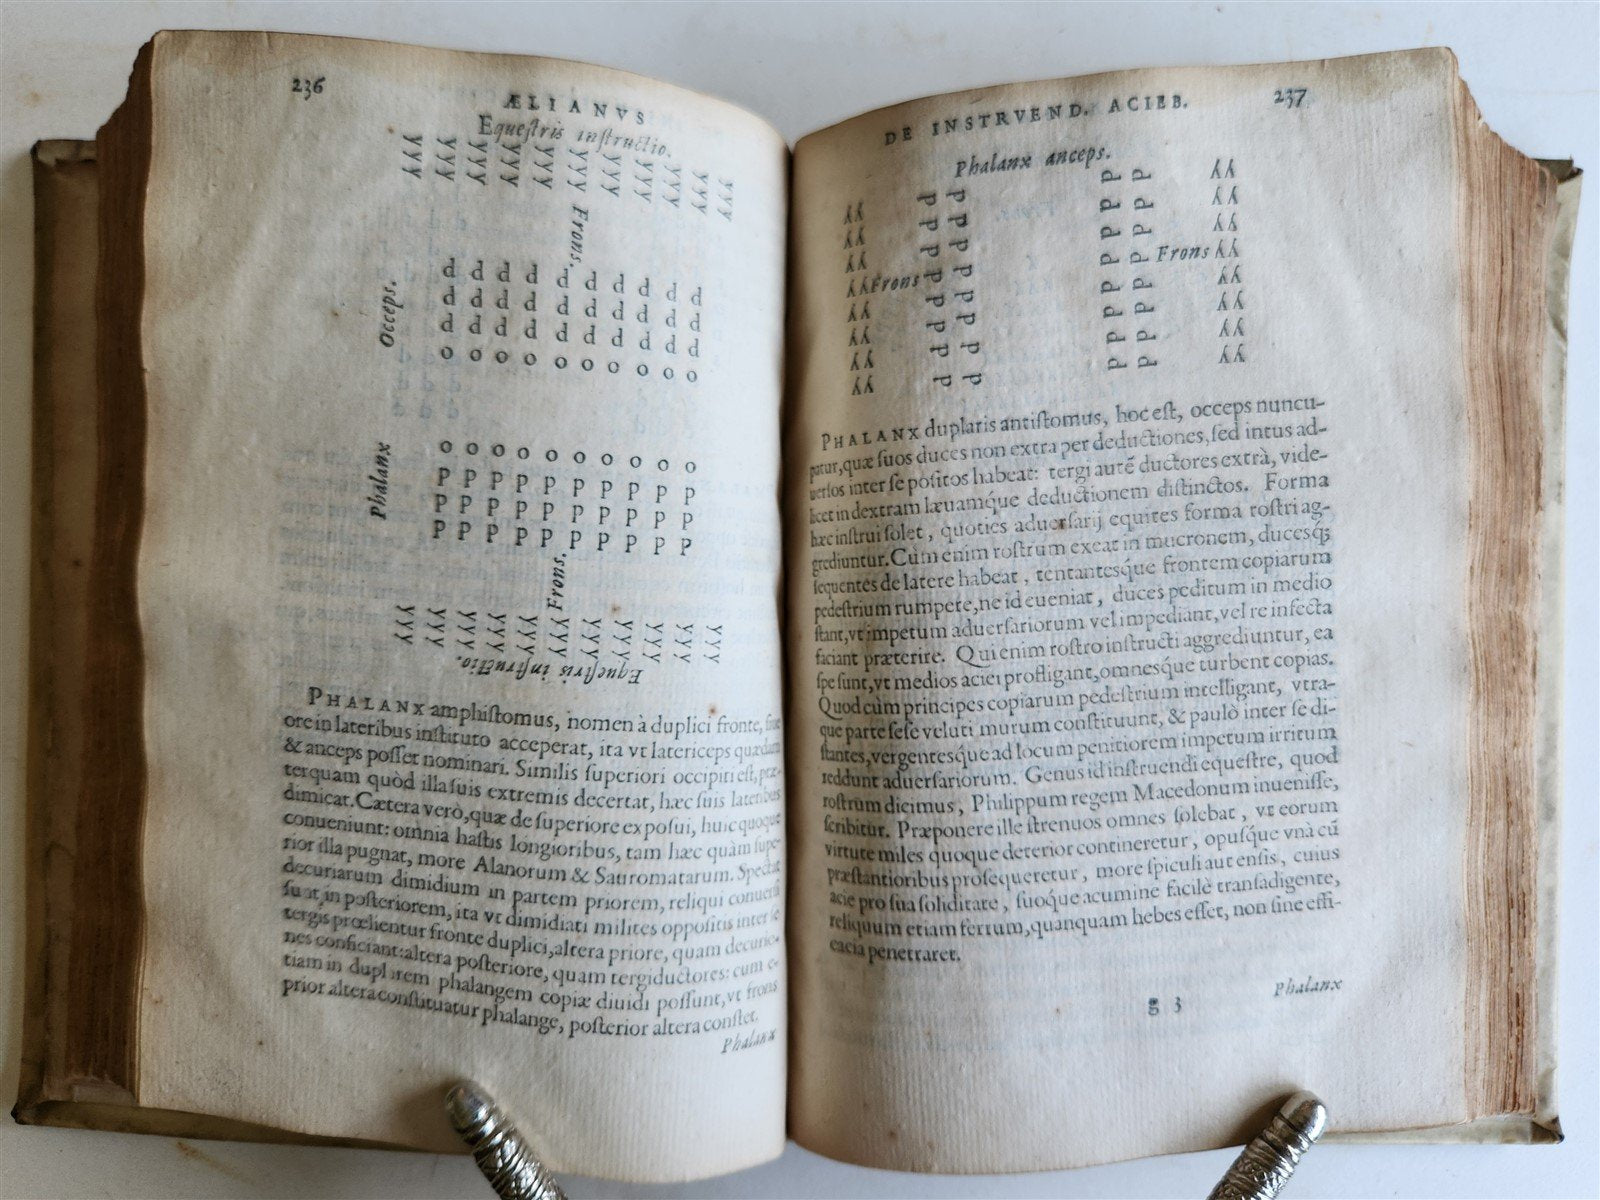 236
ÆLIANVS
Equeſtris inſtructio.
yyy yyy yyy yyy yyy yyy yyy yyy yyy yyy yyy
Frons.
d d d d d d d d d d
d d d d d d d d d d
d d d d d d d d d d
o o o o o o o o o o
Occeps.
Phalanx
o o o o o o o o o o
P P P P P P P P P P
P P P P P P P P P P
P P P P P P P P P P
Frons.
yyy yyy yyy yyy yyy yyy yyy yyy yyy yyy yyy
Equeſtris inſtructio.
PHALANX amphiſtomus, nomen à duplici fronte, ſiue
ore in lateribus inſtituto acceperat, ita vt latericeps quædam
& anceps poſſet nominari. Similis ſuperiori occipiri eſt, præ-
terquam quòd illa ſuis extremis decertat, hæc ſuis lateribus
dimicat. Cætera verò, quæ de ſuperiore expoſui, huic quoque
conueniunt: omnia haſtis longioribus, tam hæc quàm ſupe-
rior illa pugnat, more Alanorum & Sauromatarum. Spectat
decuriarum dimidium in partem priorem, reliqui conuerſi
ſunt in poſteriorem, ita vt dimidiati milites oppoſitis inter ſe
tergis prœlientur fronte duplici, altera priore, quam decurio-
nes conficiant: altera poſteriore, quam tergiductores: cum e-
tiam in duplicem phalangem copiæ diuidi poſſunt, vt frons
prior altera conſtituatur phalange, poſterior altera conſtet.
Phalanx
DE INSTRVEND. ACIEB.
237
Phalanx anceps.
Frons
Frons
PHALANX duplaris antiſtomus, hoc eſt, occeps nuncu-
patur, quæ ſuos duces non extra per deductiones, ſed intus ad-
uerſos inter ſe poſitos habeat: tergi autē ductores extrà, vide-
licet in dextram læuamq́ue deductionem diſtinctos. Forma
hæc inſtrui ſolet, quoties aduerſarij equites forma roſtri ag-
grediuntur. Cùm enim roſtrum exeat in mucronem, duceſq;
ſequentes de latere habeat, tentanteſq́ue frontem copiarum
pedeſtrium rumpere, ne id eueniat, duces peditum in medio
ſtant, vt impetum aduerſariorum vel impediant, vel re infecta
faciant præterire. Qui enim roſtro inſtructi aggrediuntur, ea
ſpe ſunt, vt medios aciei profligant, omneſq́ue turbent copias.
Quod cùm principes copiarum pedeſtrium intelligant, vtra-
que parte ſeſe veluti murum conſtituunt, & paulò inter ſe di-
ſtantes, vergenteſque ad locum penitiorem impetum irritum
reddunt aduerſariorum. Genus id inſtruendi equeſtre, quod
roſtrum dicimus, Philippum regem Macedonum inueniſſe,
ſcribitur. Præponere ille ſtrenuos omnes ſolebat, vt eorum
virtute miles quoque deterior contineretur, opuſq́ue vnà cū
præſtantioribus proſequeretur, more ſpiculi aut enſis, cuius
acie pro ſua ſoliditate, ſuoque acumine facilè tranſadigente,
reliquum etiam ferrum, quanquam hebes eſſet, non ſine effi-
cacia penetraret.
g 3
Phalanx